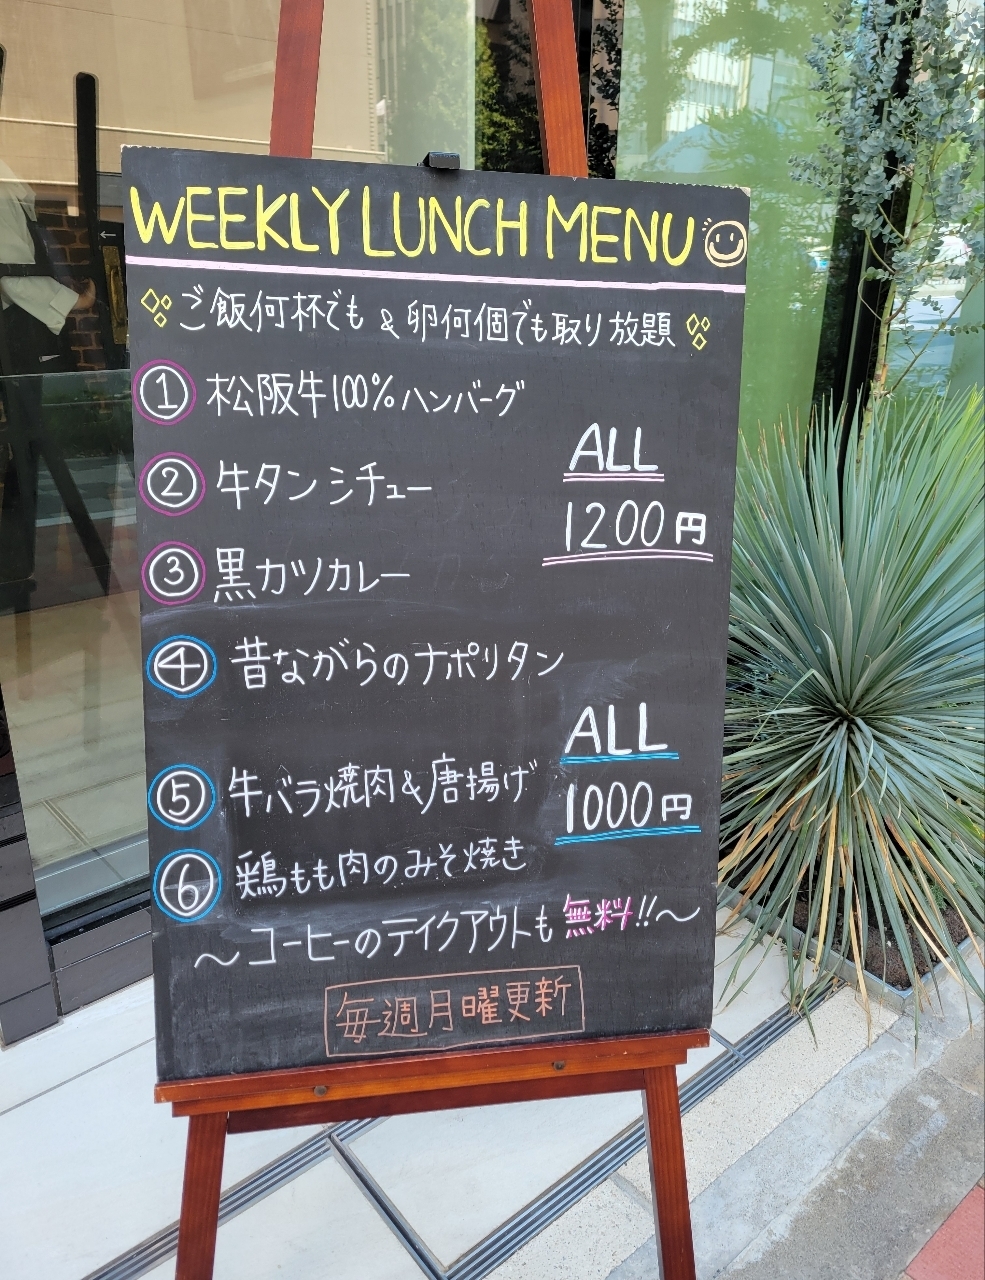 WEEKLY LUNCH MENU
ご飯何杯でも & 卵何個でも取り放題
① 松阪牛100%ハンバーグ
② 牛タンシチュー
③ 黒カツカレー
ALL
1200円
④ 昔ながらのナポリタン
⑤ 牛バラ焼肉&唐揚げ
⑥ 鶏もも肉のみそ焼き
ALL
1000円
～コーヒーのテイクアウトも無料!!～
毎週月曜更新